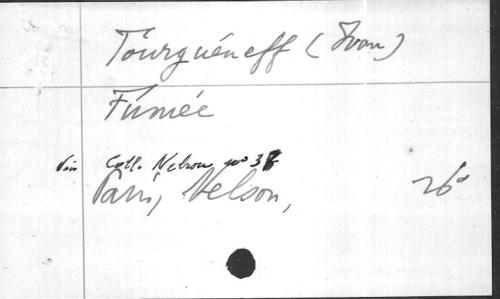 Tourguéneff (Ivan)
Fumée
Coll. Nelson, no 37
Paris, Nelson,
26°